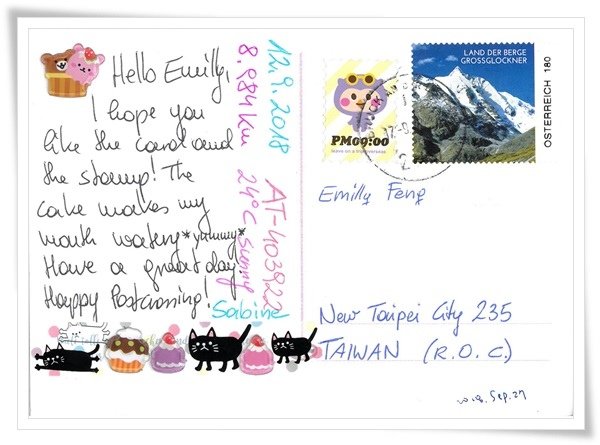 Hello Emilly,
I hope you
like the card and
the stamp! The
cake makes my
mouth watery *yummy*
Have a great day!
Happy Postcrossing!
Sabine
12.9.2018
8.984 km
AT-403922
24°C sunny
PM09:00
LAND DER BERGE
GROSSGLOCKNER
ÖSTERREICH 180
Emilly Feng
New Taipei City 235
TAIWAN (R.O.C.)
2018. Sep. 27